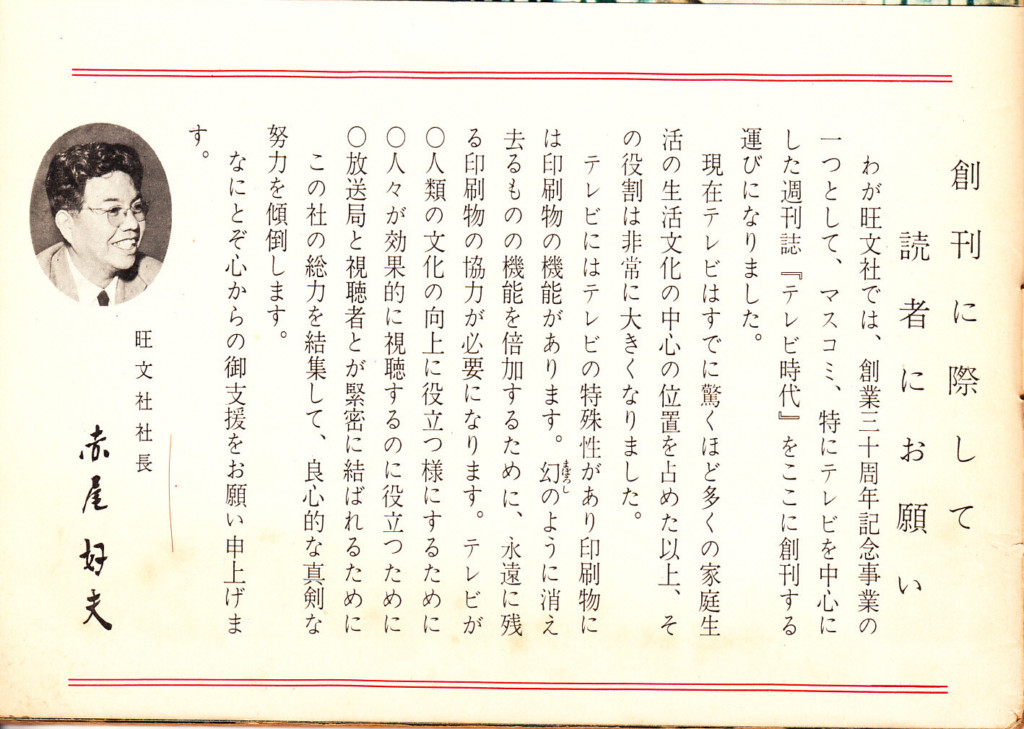 創刊に際して
読者にお願い
わが旺文社では、創業三十周年記念事業の
一つとして、マスコミ、特にテレビを中心に
した週刊誌『テレビ時代』をここに創刊する
運びになりました。
現在テレビはすでに驚くほど多くの家庭生
活の生活文化の中心の位置を占めた以上、そ
の役割は非常に大きくなりました。
テレビにはテレビの特殊性があり印刷物に
は印刷物の機能があります。幻のように消え
まぼろし
去るものの機能を倍加するために、永遠に残
る印刷物の協力が必要になります。テレビが
〇人類の文化の向上に役立つ様にするために
〇人々が効果的に視聴するのに役立つために
〇放送局と視聴者とが緊密に結ばれるために
この社の総力を結集して、良心的な真剣な
努力を傾倒します。
なにとぞ心からの御支援をお願い申上げま
す。
旺文社社長
赤尾好夫